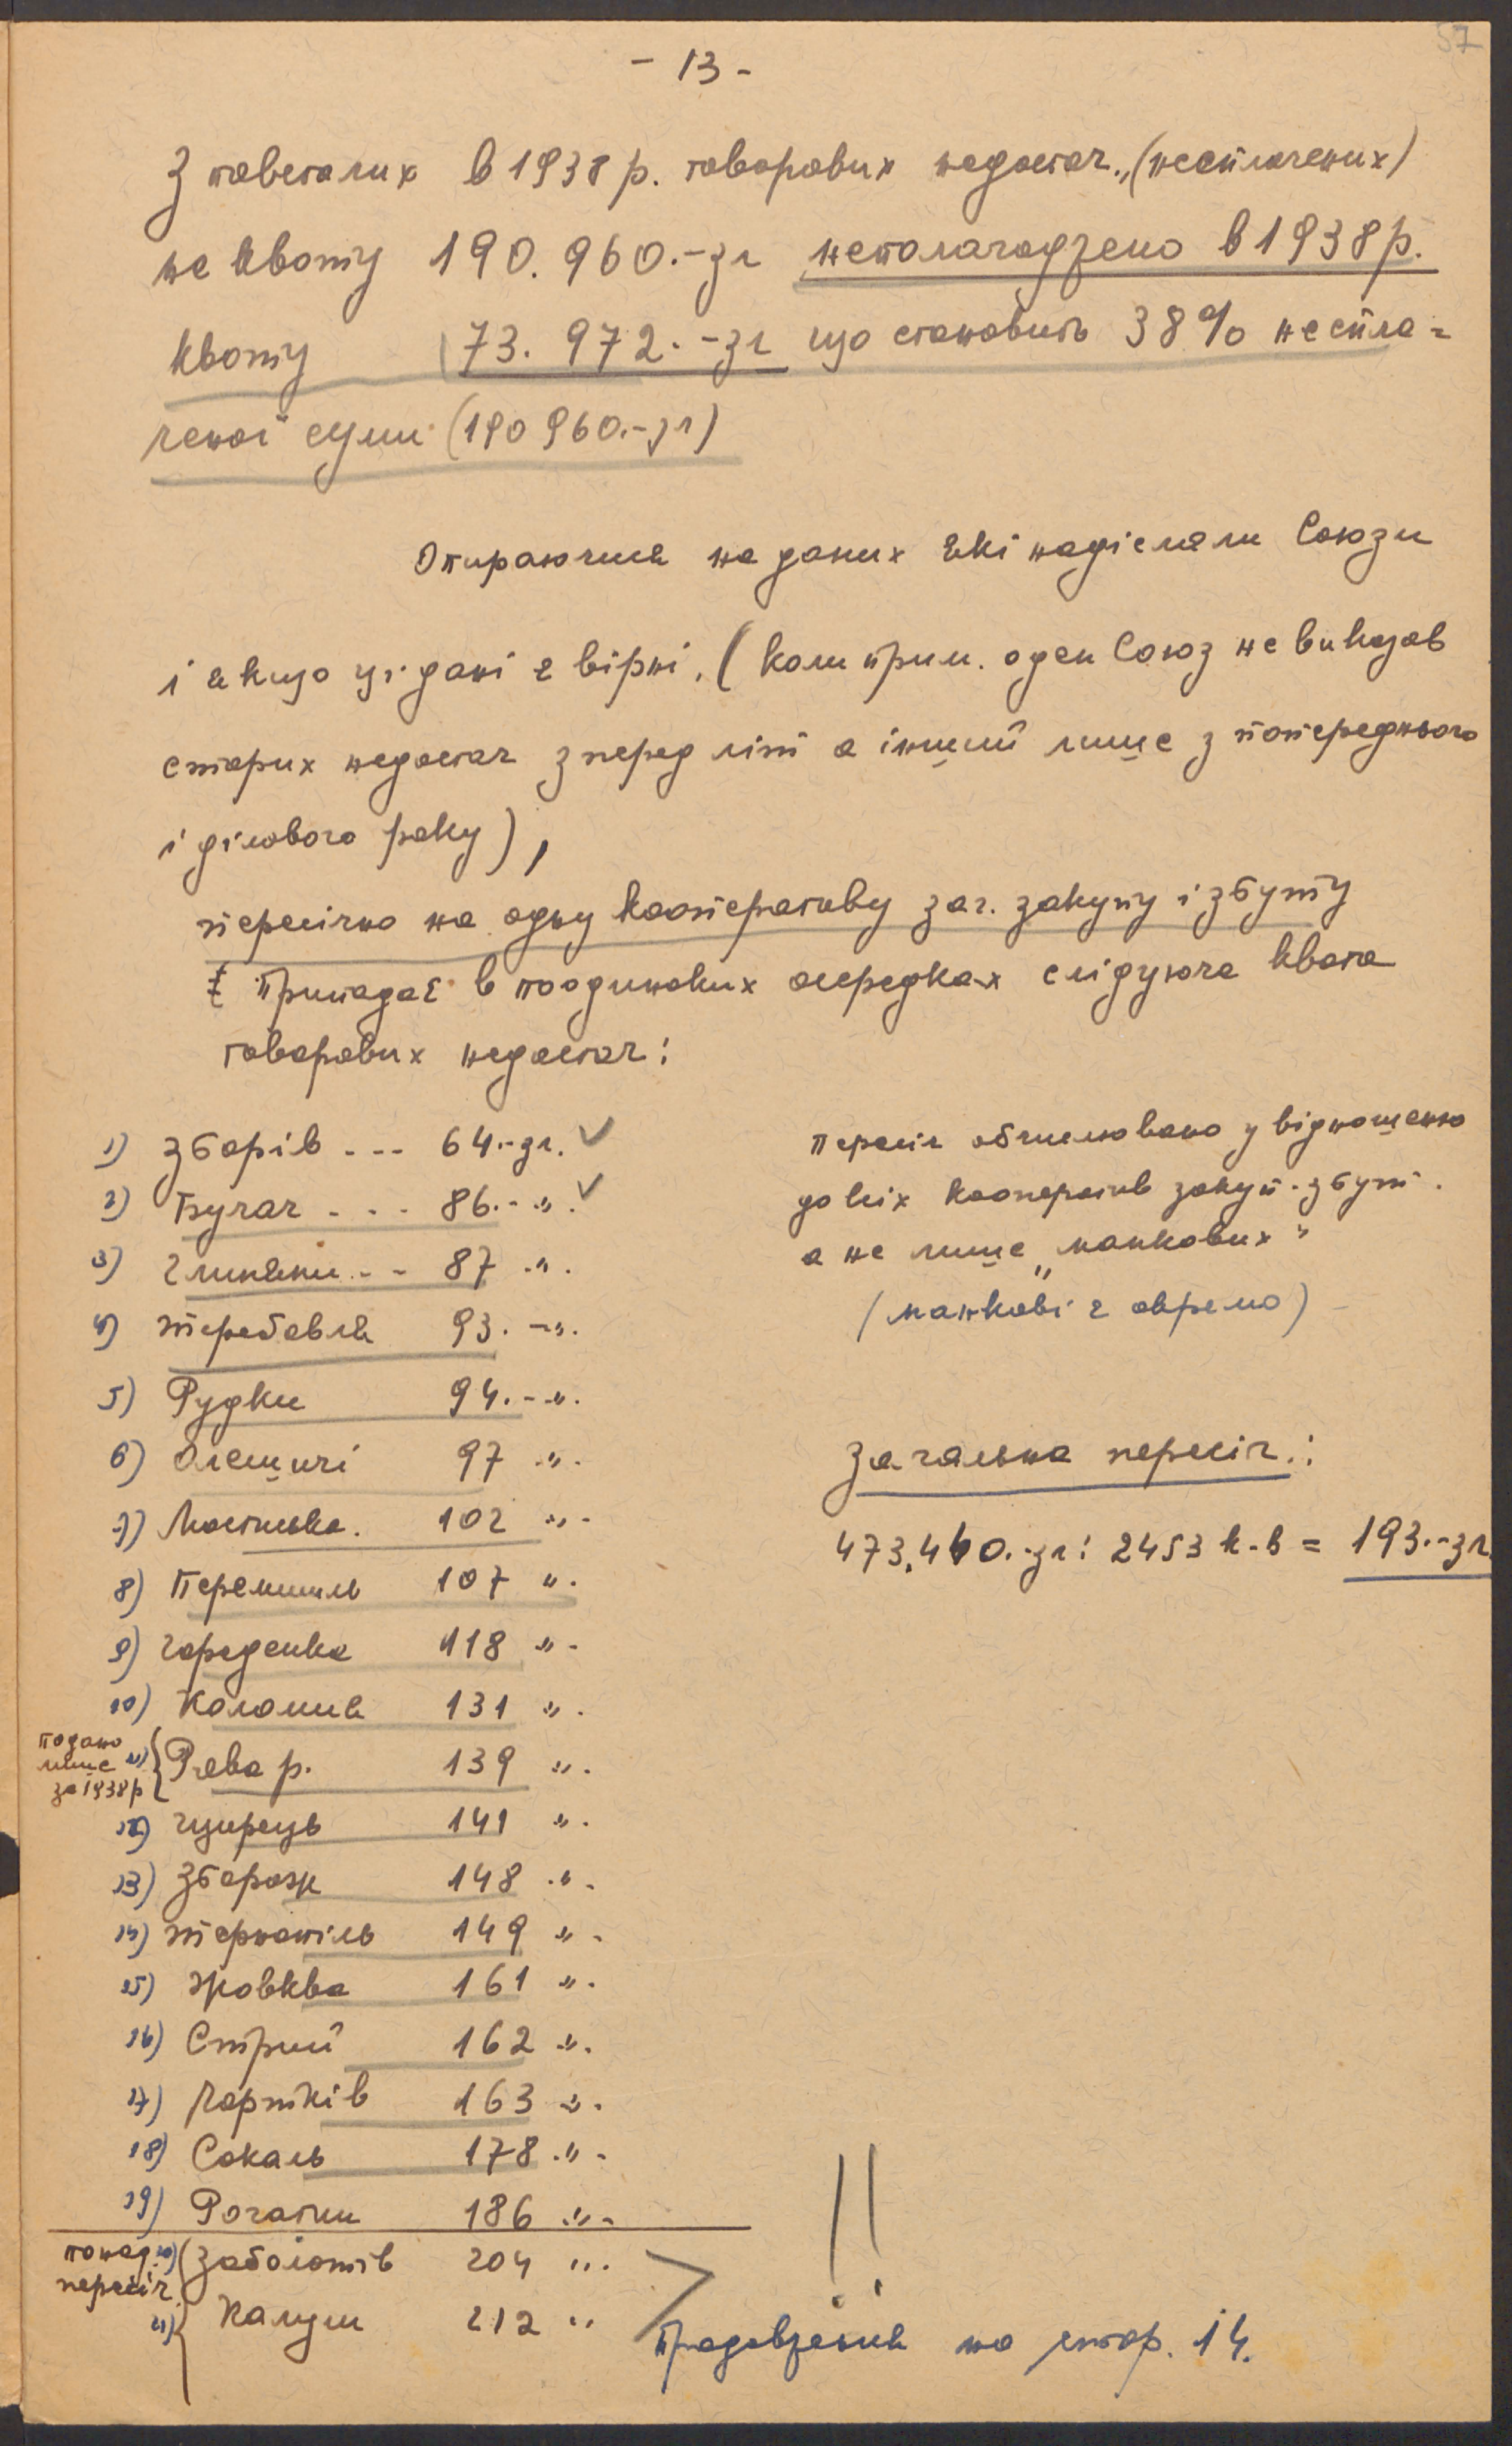 57
- 13 -
З повсталих в 1938 р. товарових недостач „(несплачених)
на квоту 190.960.-зл неполагоджено в 1938р.
квоту 73.972.-зл що становить 38% неспла=
ченої суми (190960.-зл)
Опираючися на даних які надіслали Союзи
і якщо ці дані є вірні, (коли прим. оден Союз не виказав
старих недостач зперед літ а інший лише з попереднього
і ділового року),
пересічно на одну кооперативу заг. закупу і збуту
припадає в поодиноких осередках слідуюча квота
товарових недостач:
1) Зборів - - - 64.-зл. ✓
2) Бучач - - - 86.- „. ✓
3) Глиняни - - 87 „.
4) Теребовля 93.-„.
5) Рудки 94.-„.
6) Олешичі 97 „.
7) Мостиська. 102 „-
8) Перемишль 107 „.
9) Городенка 118 „-
10) Коломия 131 „.
подано
лише
за 1938р
11) Рава р. 139 „.
12) Щирець 141 „.
13) Збараж 148 „.
14) Тернопіль 149 „-
15) Жовква 161 „.
16) Стрий 162 „.
17) Чортків 163 „.
18) Сокаль 178 „-
19) Рогатин 186 „-
понад
пересіч.
20) Заболотів 204 „.
21) Калуш 212 „
Пересіч обчислювано у відношенню
до всіх кооператив закуп.-збут.
а не лише „манкових"
(манкові є окремо)
Загальна пересіч.:
473.460.-зл: 2453 к-в = 193.-зл.
!!
Продовження на стор. 14.